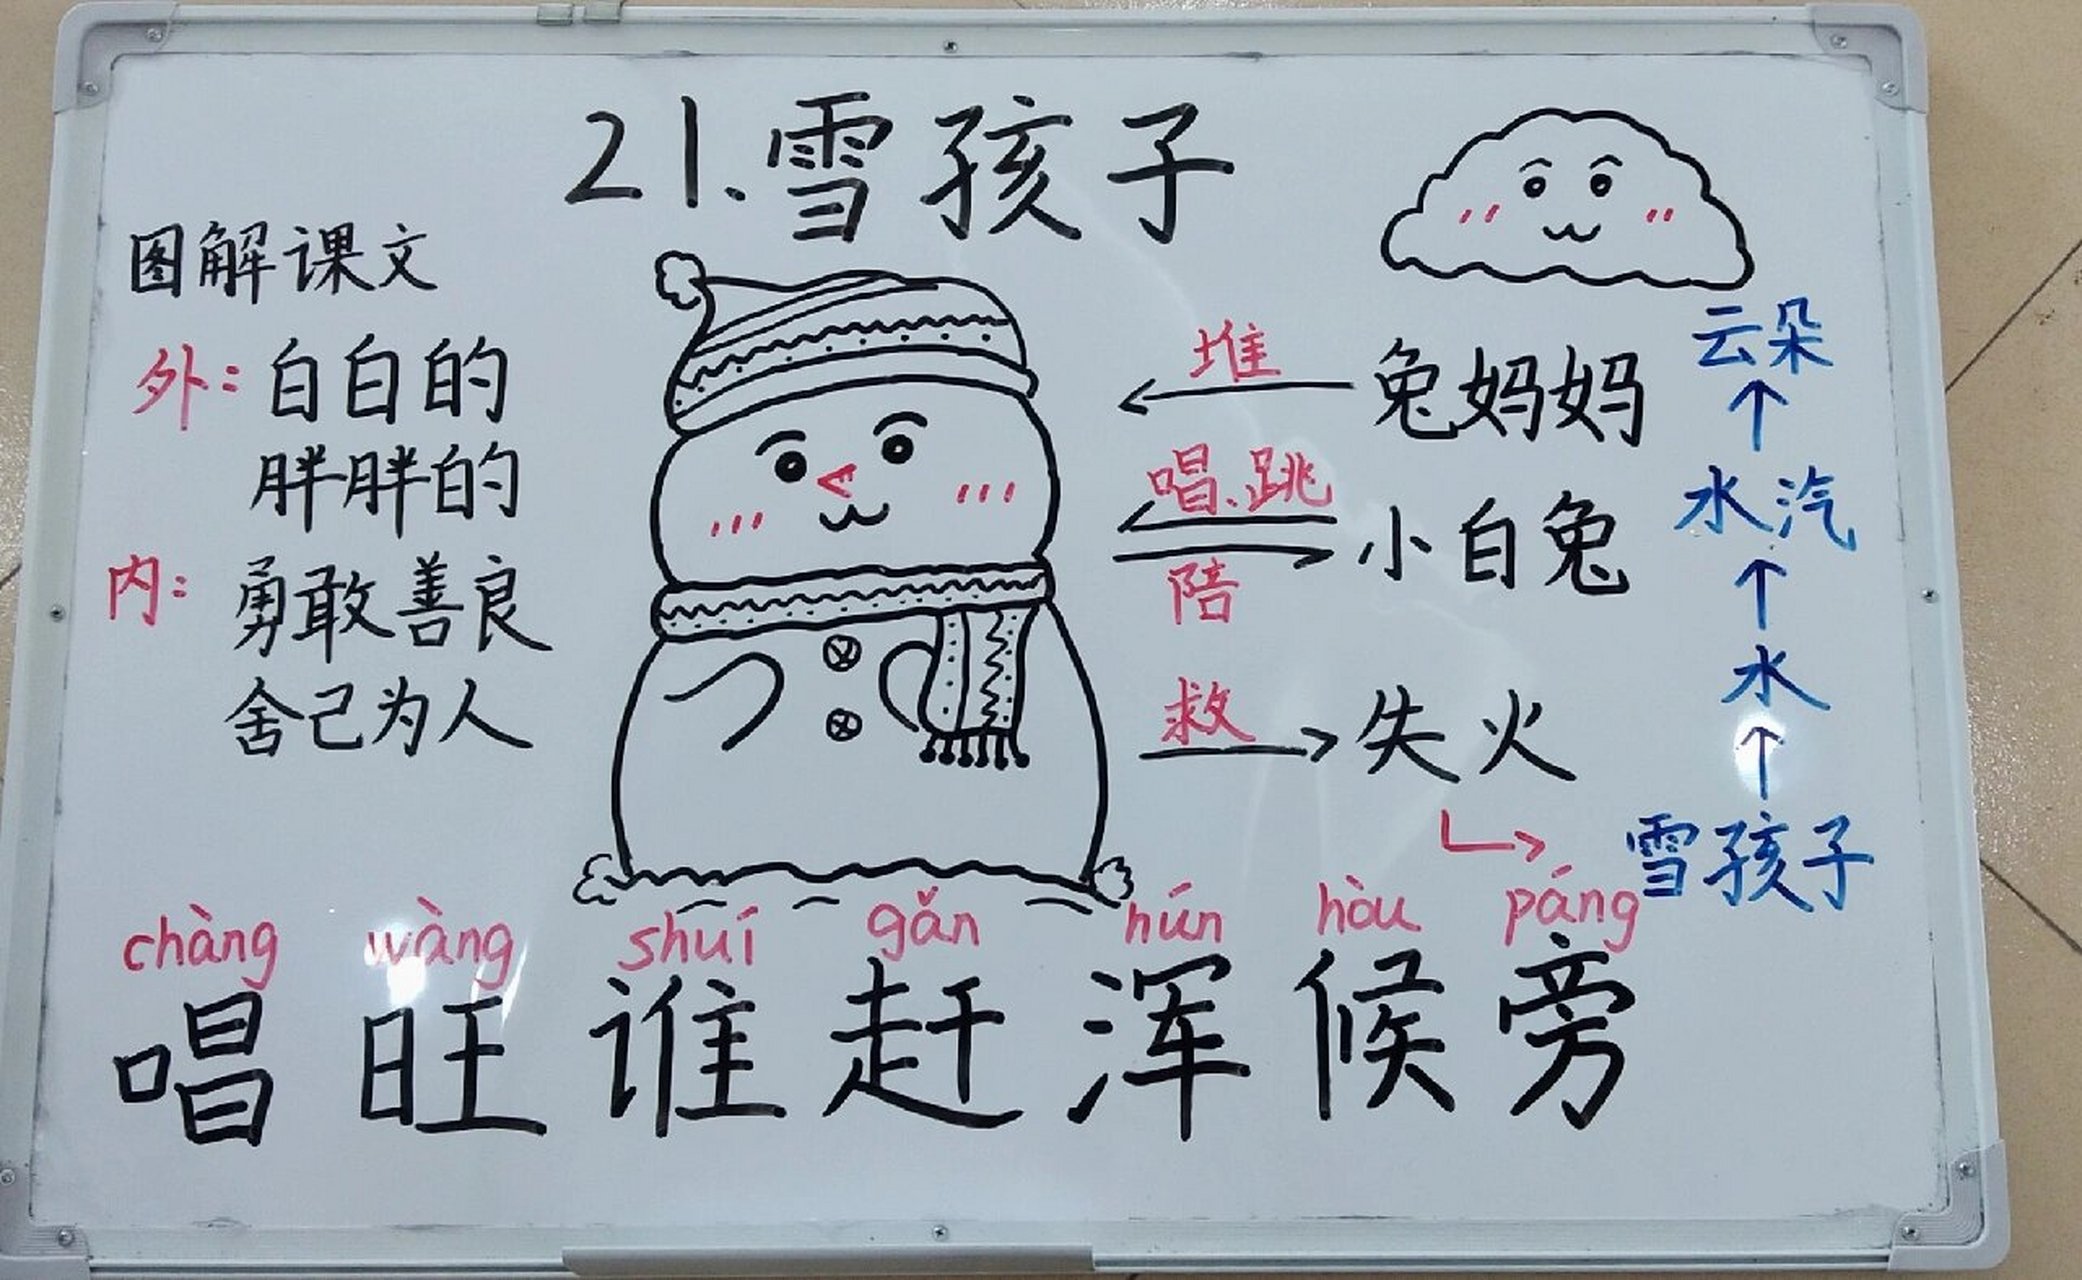 21.雪孩子
图解课文
外：白白的
胖胖的
内：勇敢善良
舍己为人
堆 兔妈妈
唱、跳
陪 小白兔
救 失火
云朵
水汽
水
雪孩子
chàng wàng shuí gǎn hún hòu páng
唱 旺 谁 赶 浑 候 旁